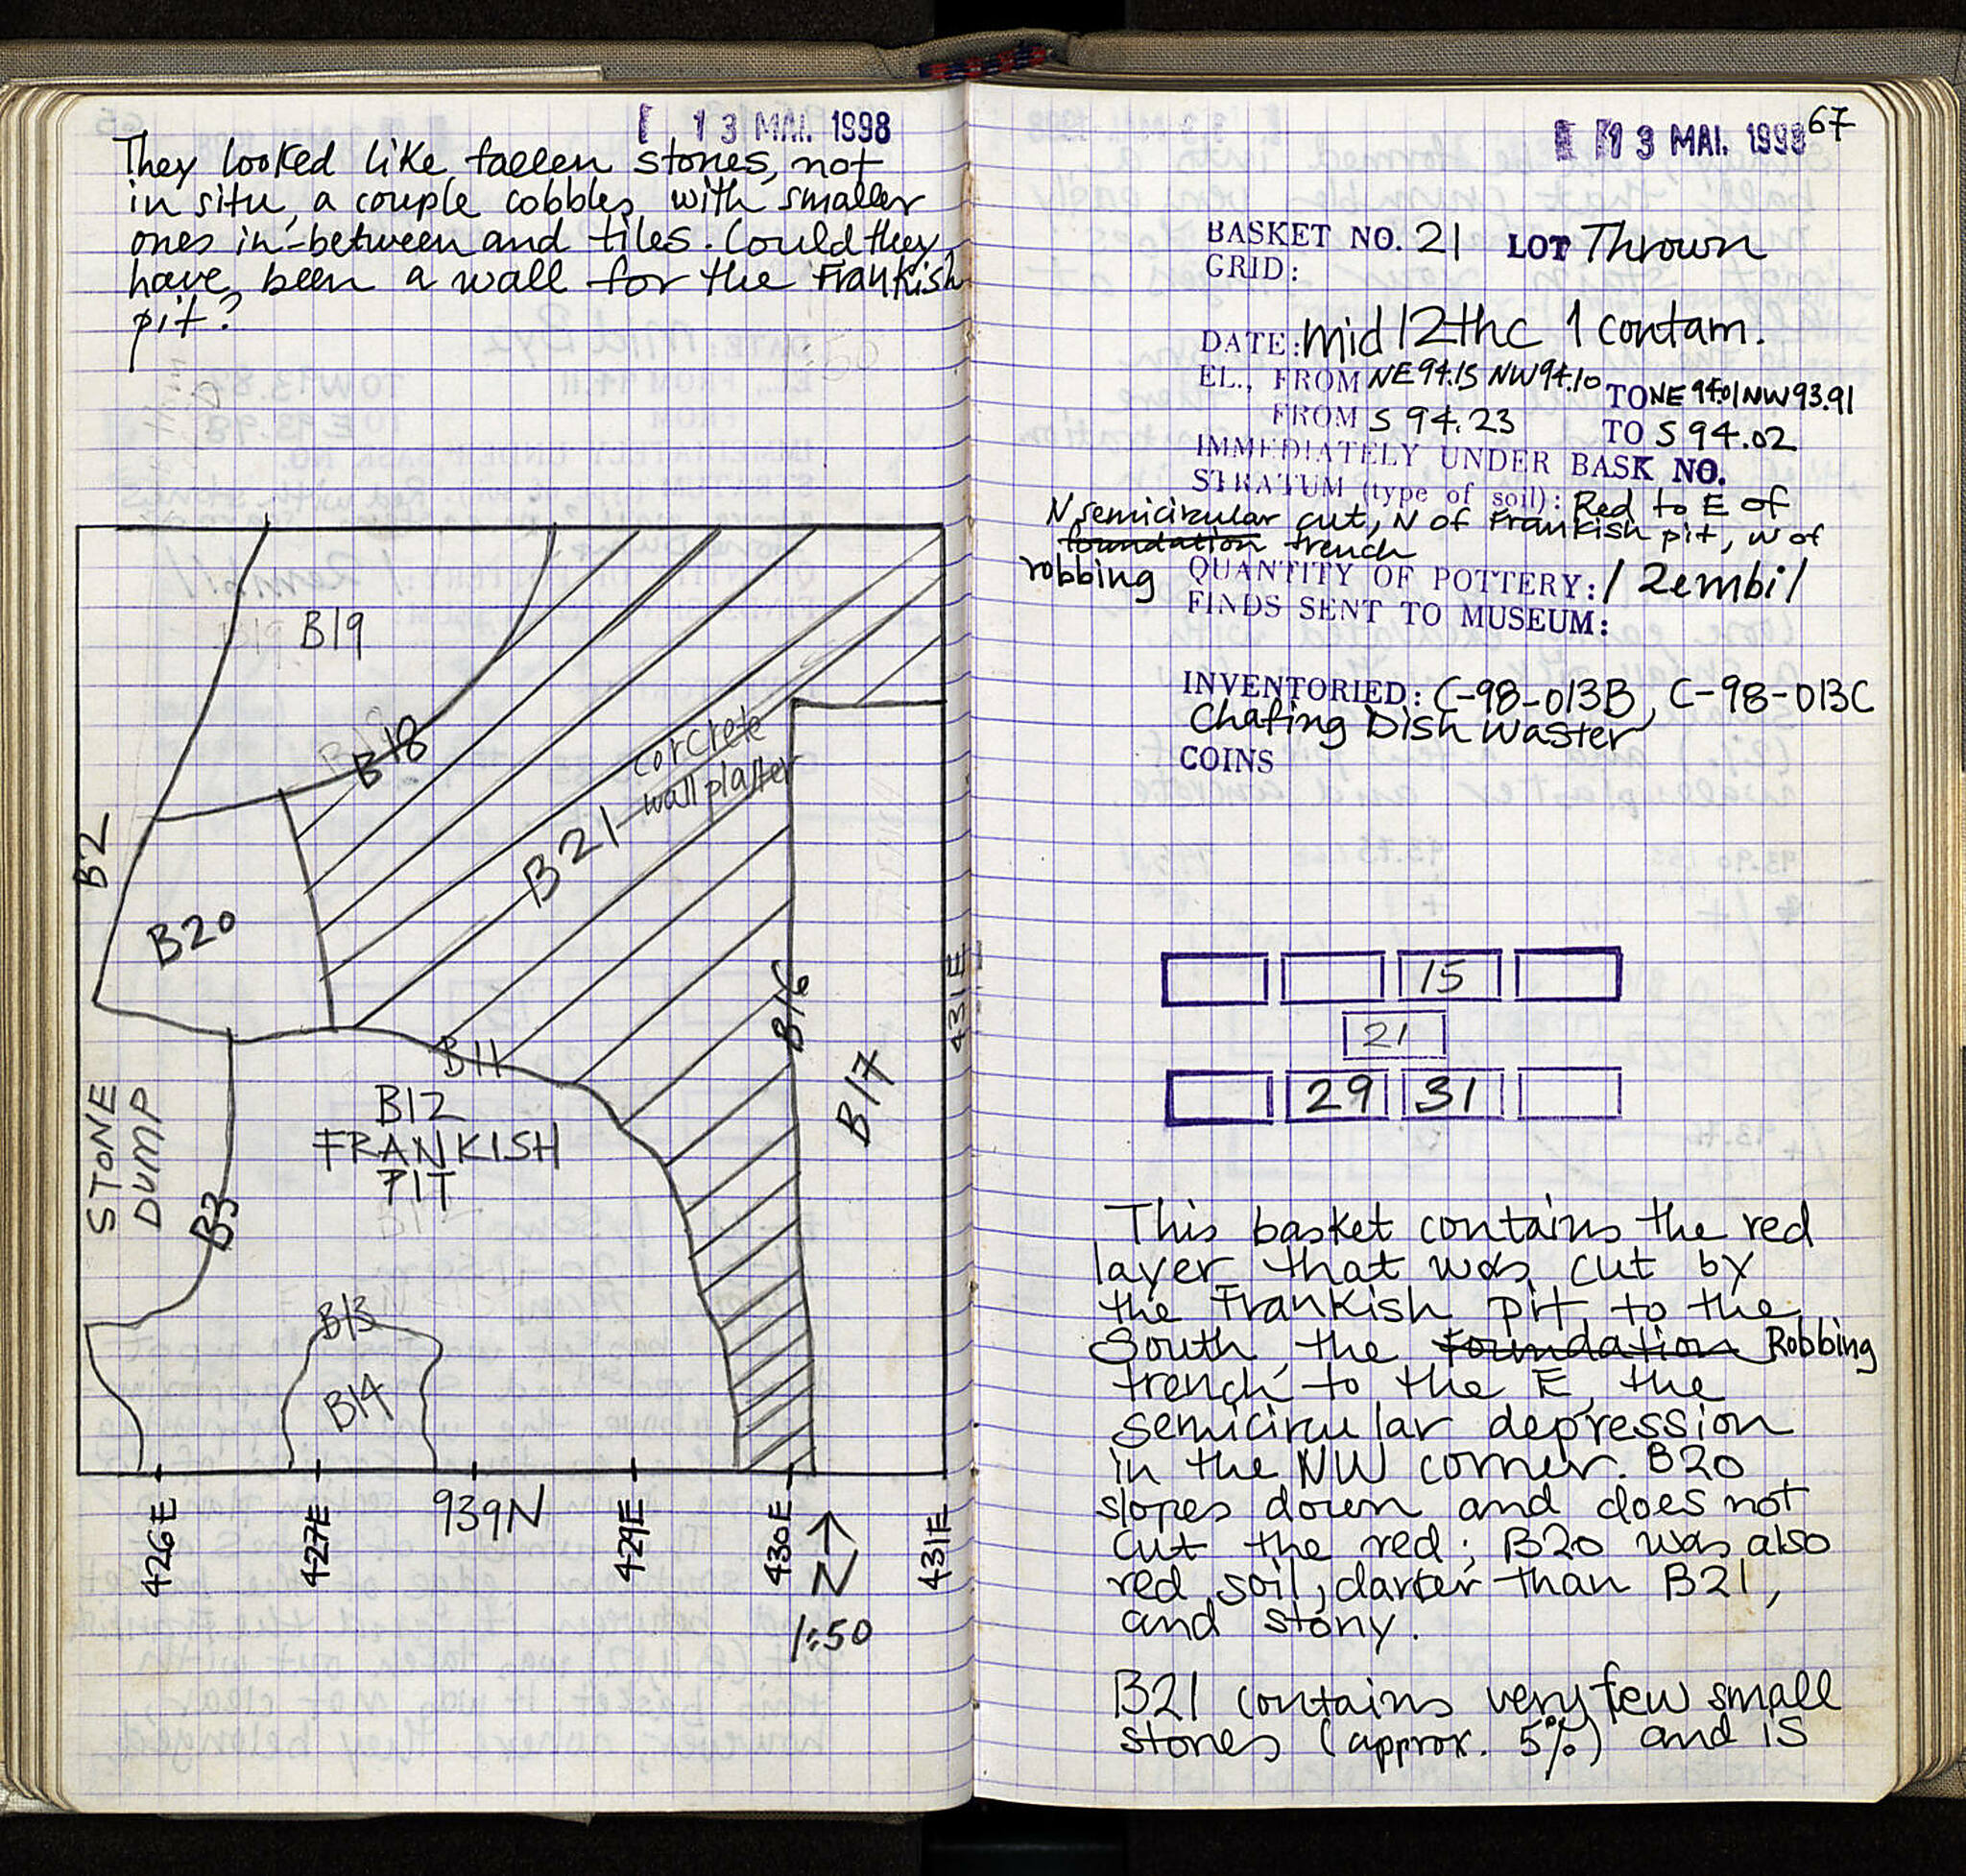 13 MAI. 1998
They looked like fallen stones, not
in situ, a couple cobbles with smaller
ones in-between and tiles. Could they
have been a wall for the Frankish
pit?
B19
B18
concrete
wall plaster
B21
B2
B20
B16
431E
B11
B17
B12
FRANKISH
PIT
STONE
DUMP
B3
B13
B14
426E
427E
939N
429E
430E
N
431E
1:50
67
13 MAI. 1998
BASKET NO. 21 LOT Thrown
GRID:
DATE: mid 12thc 1 contam.
EL., FROM NE 94.15 NW 94.10 TO NE 94.01 NW 93.91
FROM S 94.23 TO S 94.02
IMMEDIATELY UNDER BASK NO.
STRATUM (type of soil): Red to E of
N semicircular cut, N of Frankish pit, W of
foundation trench
robbing
QUANTITY OF POTTERY: 1 Zembil
FINDS SENT TO MUSEUM:
INVENTORIED: C-98-013B, C-98-013C
Chafing Dish Waster
COINS
15
21
29 31
This basket contains the red
layer that was cut by
the Frankish pit to the
South, the foundation Robbing
trench to the E, the
semicircular depression
in the NW corner. B20
slopes down and does not
cut the red; B20 was also
red soil, darker than B21,
and stony.
B21 contains very few small
stones (approx. 5%) and is